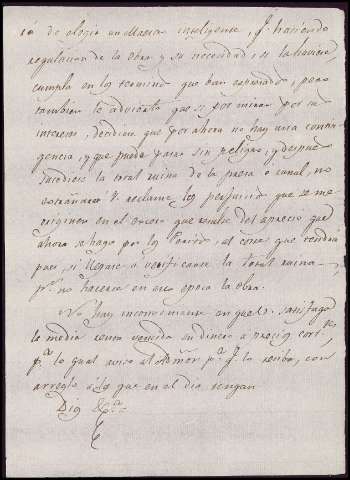 cá de elegir un Maestro inteligente, q.e haciendo
regulacion de la obra y su necesidad, si la hubiere,
cumpla en los terminos que ban expresados, pero
tambien le advierta que si por mirar por su
interes, decidiere que por ahora no hay una contin
gencia, y que puede pasar sin peligro, y despues
sucediese la total ruina de la presa o canal, no
estrañará V. reclame los perjuicios que se me
originen en el exceso que resulte del aprecio que
ahora se haga por los Peritos, al coste que tendrá
para, si llegare a verificarse la total ruina
p.r no hacerse en esta epoca la obra.
No hay inconveniente en que se satisfaga
la media renta vencida en dinero a precios corr.tes
p.a lo qual aviso al Admor p.a q.e la reciba, con
arreglo a lo que en el dia tengan
Dios &.a